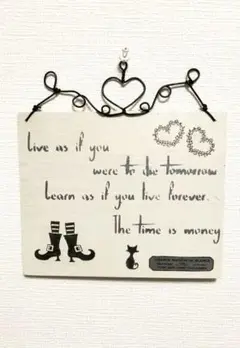 Live as if you
were to die tomorrow
Learn as if you live forever.
The time is money